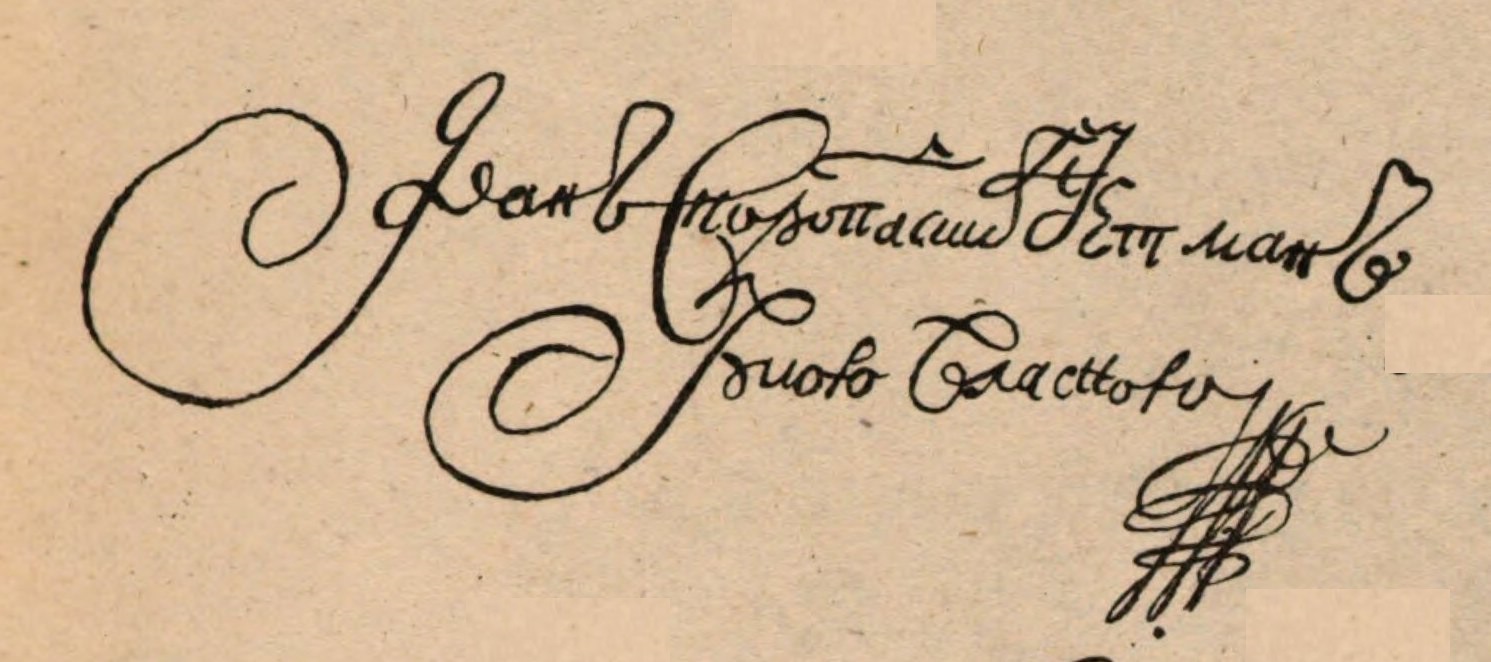 Иванъ Скоропадскій Гетманъ
Рукою Властною